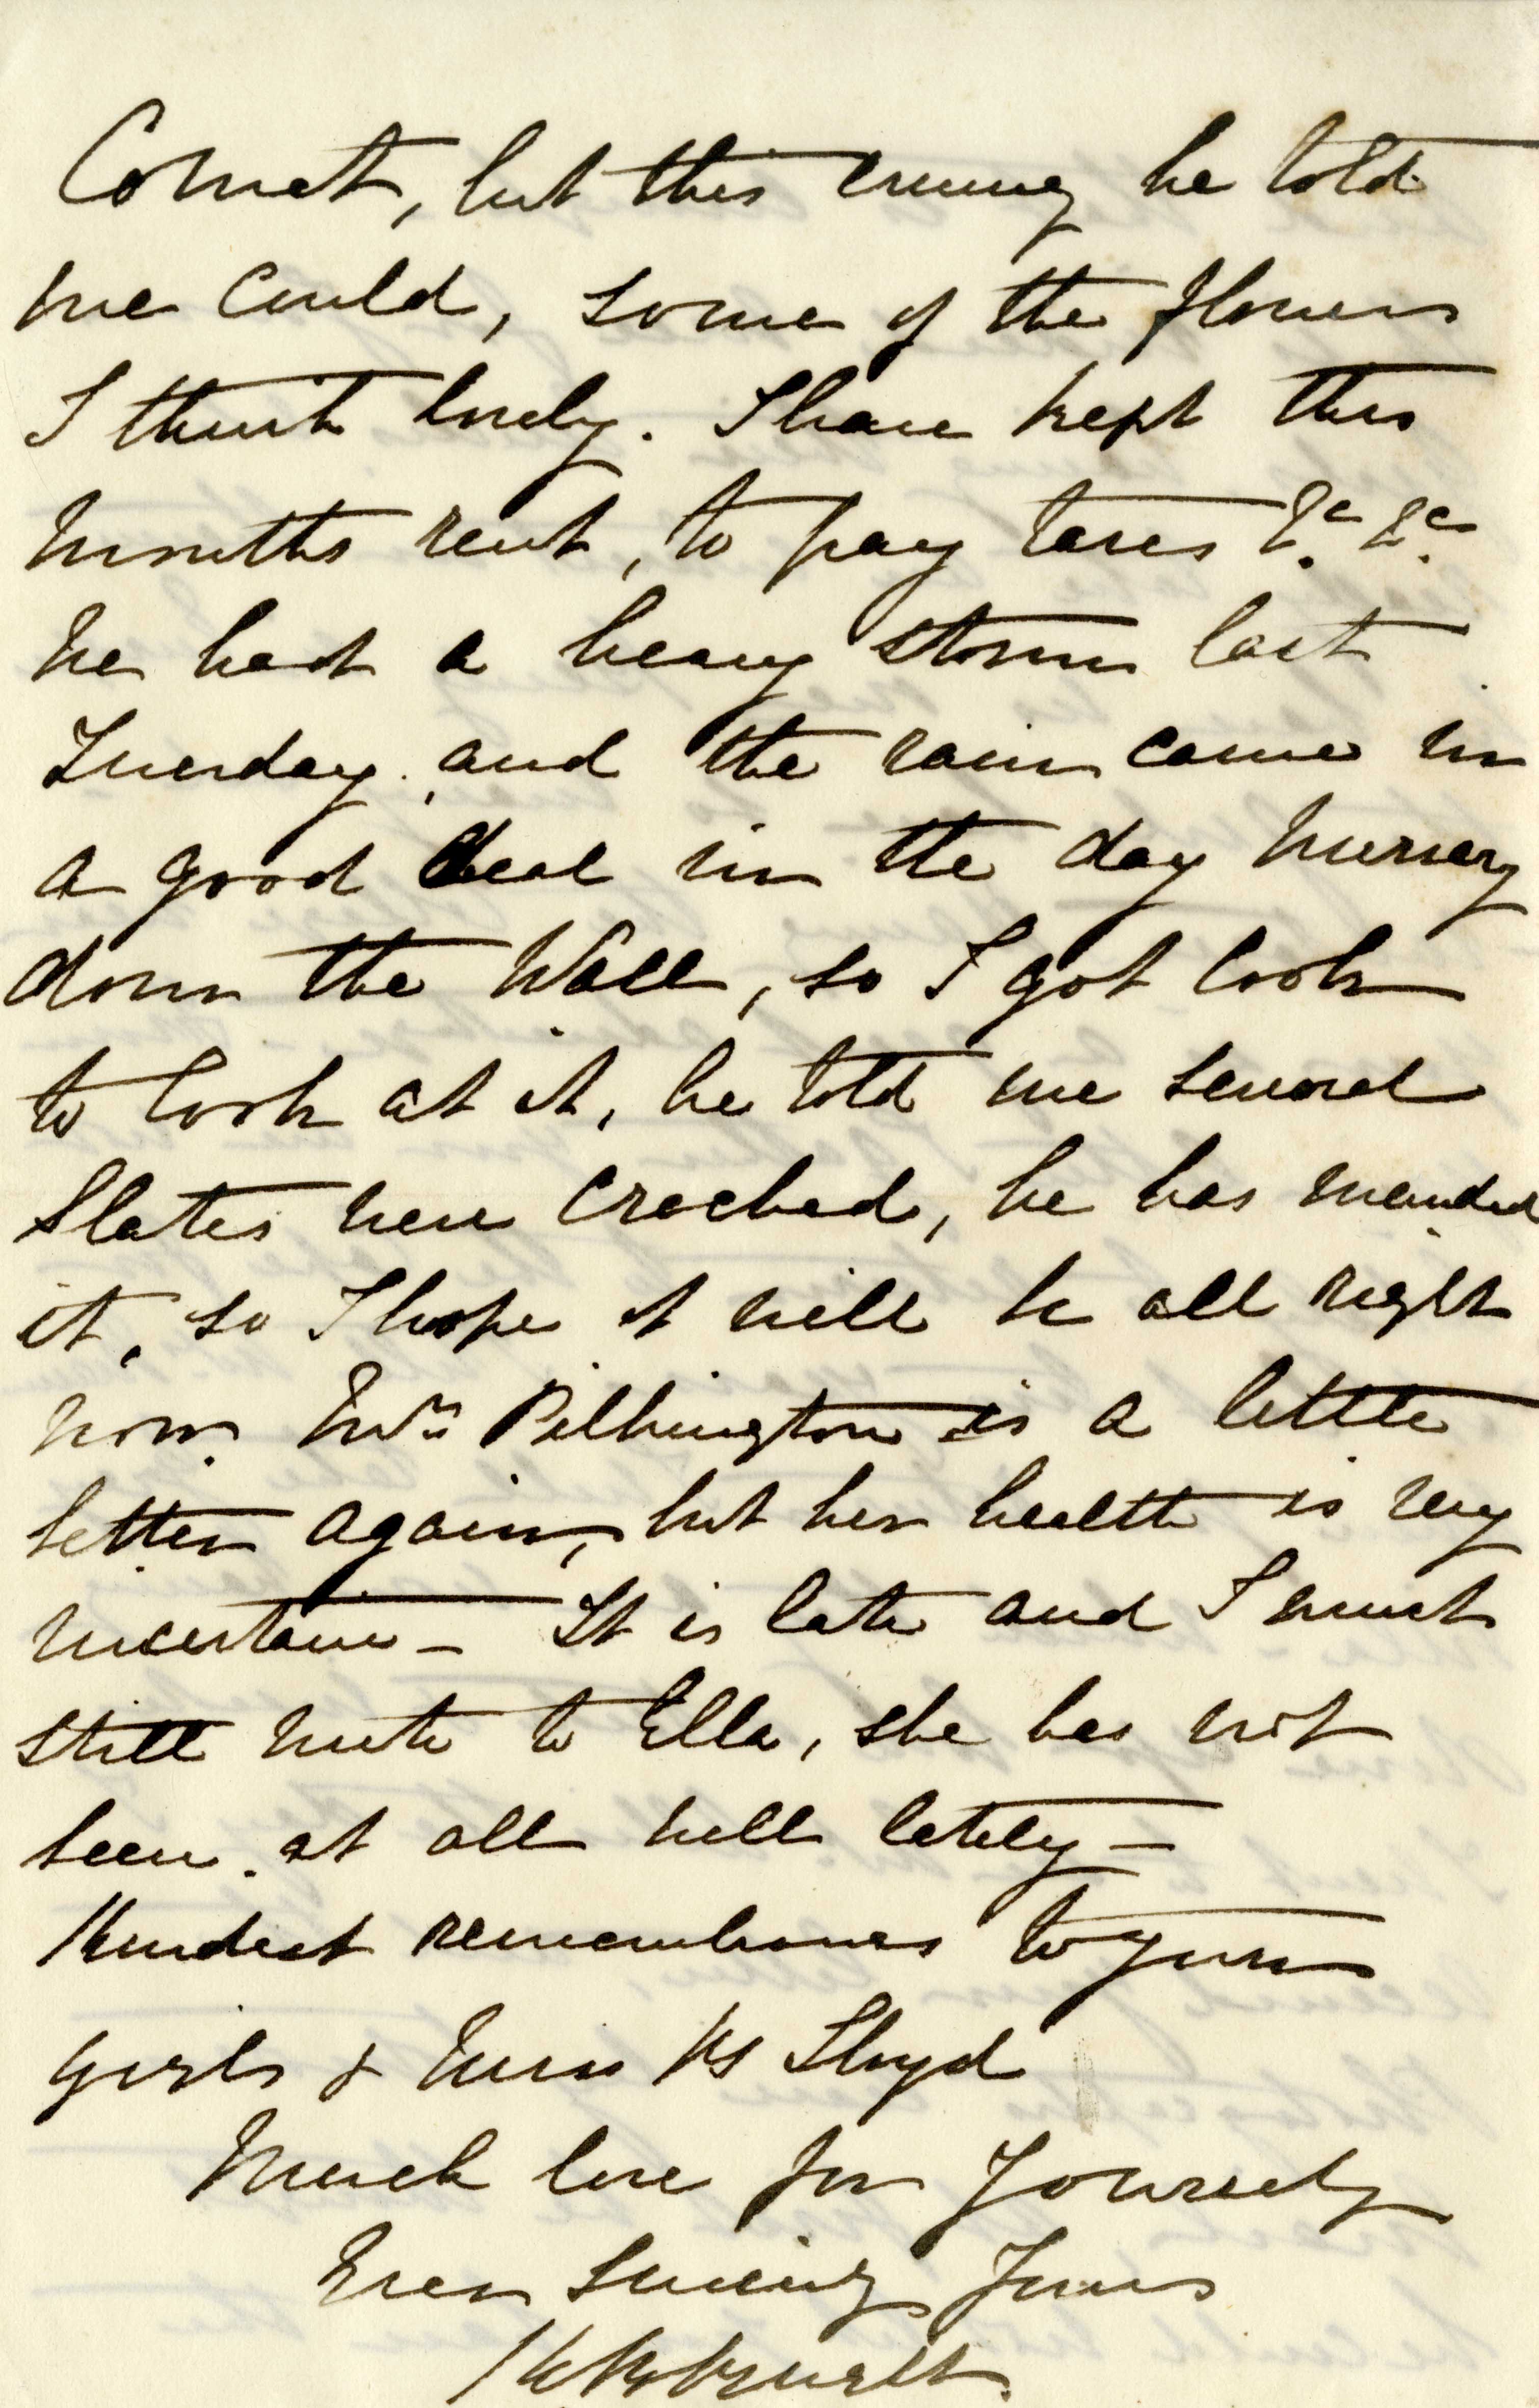 Comet, but this evening he told
me could, some of the flowers
I think lovely. I have kept this
months rent, to pay taxes &c. &c.
We had a heavy storm last
Tuesday, and the rain came in
a good deal in the day nursery
down the Wall, so I got Cook
to look at it, he told me several
Slates were cracked, he has mended
it, so I hope it will be all right
now. Mrs Pilkington is a little
better again, but her health is very
uncertain – It is late and I must
still write to Ella, she has not
been at all well lately –
Kindest remembrances to your
girls & Miss Lloyd
Much love for Yourself
Ever Sincerely Yours